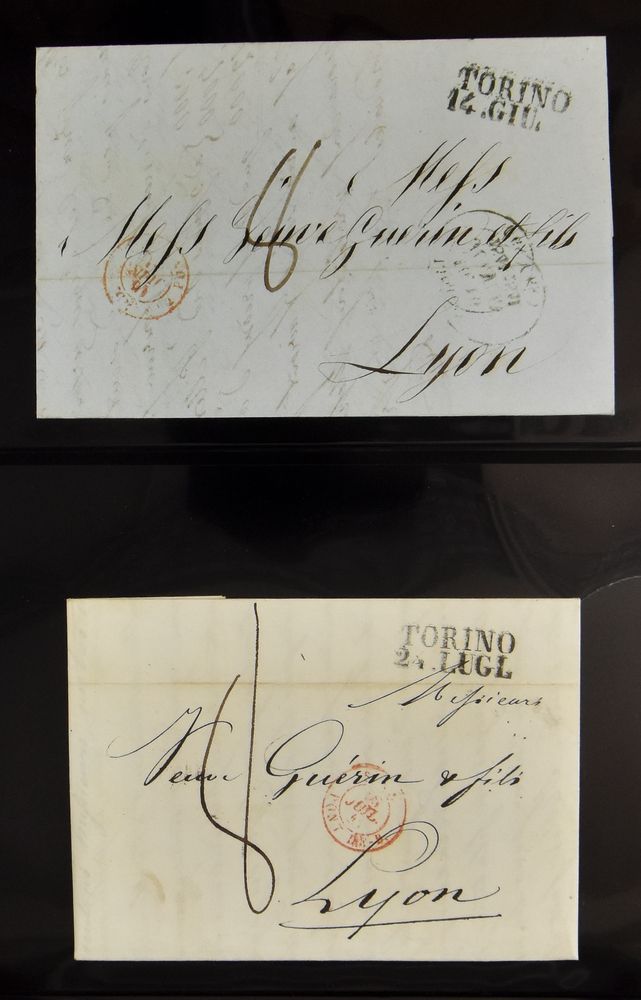 TORINO
14.GIU.
Mess
Mess Veuve Guérin et fils
Lyon
TORINO
24.LUGL
Messieurs
Veuve Guérin & fils
JUIL.
PONT
Lyon